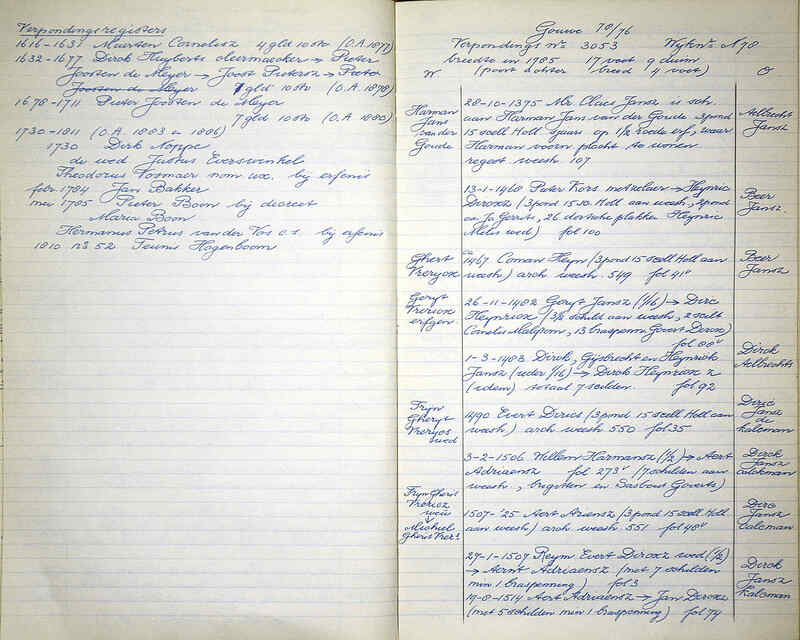 Verpondingsregisters
1616-1631 Maerten Cornelisz 4 gld 10 sto (O.A. 1877)
1632-1677 Dirck Huyberts olermaecker → Pieter
Joosten de Meyer → Joost Pietersz → Pieter
Joosten de Meyer 7 gld 10 sto (O.A. 1878)
1678-1711 Pieter Joosten de Meyer
7 gld 10 sto (O.A. 1880)
1730-1811 (O.A. 1883 en 1886)
1730 Dirk Noppe
de wed Justus Everswinkel
Theodorus Vosmaer nom ux. by erfenis
febr. 1784 Jan Bakker
mei 1785 Pieter Boon bij decreet
Maria Boon
Hermanus Petrus van der Vos c.s. by erfenis
1810 nº 52 Teunis Hogenboom
Gouwe 78/76
Verpondings nº 3053 Wyknº N 78
breedte in 1785 17 voet 9 duim
W (poort achter breed 4 voet) O
Harman
Jans
van der
Goude
28-10-1375 Mr. Claes Jansz is sch.
aan Harman Jan van der Goude 3 pond
15 scell Holl sjaers op 1/2 roede erf, waar
Harman voorn placht te wonen
regest weesh 107
Aelbrecht
Jansz
13-1-1460 Pieter Kors metselaer → Heynric
Dircxz (3 pond 15 sc. Holl aan weesh, 2 pond
an Jo Gerrits, 26 dortsche plakken Heynric
Meles wed) fol 100
Beer
Jansz.
Ghert
Vreryckx
1467 Coman Heyn (3 pond 15 scell Holl aan
weesh) arch weesh. 549 fol 41v
Beer
Jansz
Geryt
Vrericx
erfgen.
26-11-1482 Geryt Jansz (1/16) → Dirc
Heynricx (3 1/2 schilt aan weesh, 2 scilt
Cornelis Malepom, 13 braspenn Govert Dircx)
fol 88v
1-3-1483 Dirck, Gijsbrecht en Heynrick
Jansz (ieder 1/16) → Dirck Heynricx z
(idem) totaal 7 scilden. fol 92
Dirck
Aelbrechts
Fryn
Gheryt
Vrerycs
wed
1490 Evert Dircs (3 pond 15 scell Holl aan
weesh) arch weesh 550 fol 35
Dirc
Jansz
de
Kaleman
3-2-1506 Willem Harmansz (1/2) → Aert
Adriaensz fol 273v (7 schilden aan
weesh, brigitten en Sasbout Goverts)
Dirck
Jansz
Calckman
Fryn Ghert
Vrericx
wed
Michiel
Gherit Vrer.
1507-'25 Aert Ariensz (3 pond 15 scell Holl
aan weesh) arch weesh 551 fol 48v
Dirc
Jansz
Caleman
27-1-1507 Reym Evert Dircxz wed (1/2)
→ Aernt Adriaensz (met 7 schilden
min 1 braspenning) fol 3
Dirck
Jansz
Kaleman
19-8-1514 Aert Adriaensz → Jan Dircxz
(met 5 schilden min 1 braspenning) fol 74